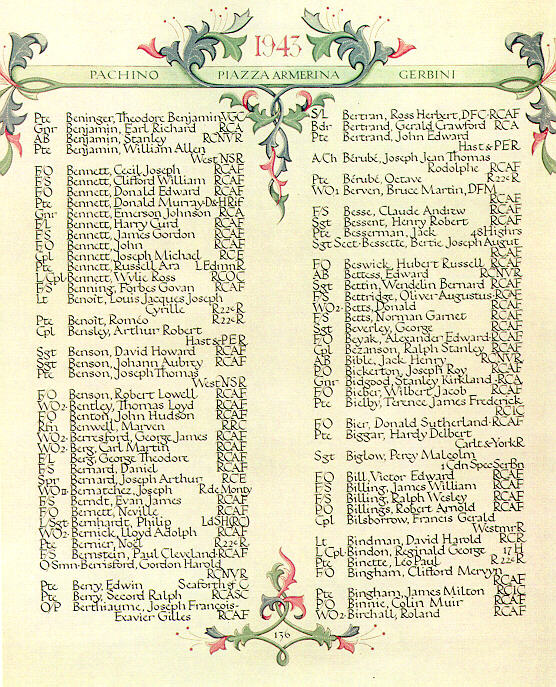 1943
PACHINO PIAZZA ARMERINA GERBINI
Pte Beninger, Theodore Benjamin VGC
Gnr Benjamin, Earl Richard RCA
AB Benjamin, Stanley RCNVR
Pte Benjamin, William Allen
West NSR
F/O Bennett, Cecil Joseph RCAF
F/S Bennett, Clifford William RCAF
F/O Bennett, Donald Edward RCAF
Pte Bennett, Donald Murray-D&HRif
Gnr Bennett, Emerson Johnson RCA
F/L Bennett, Harry Curd RCAF
F/S Bennett, James Gordon RCAF
F/O Bennett, John RCAF
Cpl Bennett, Joseph Michael RCE
Pte Bennett, Russell Ara LEdmnR
L/Cpl-Bennett, Wylie Ross RCOC
F/S Benning, Forbes Govan RCAF
Lt Benoit, Louis Jacques Joseph
Cyrille R22eR
Pte Benoit, Roméo R22eR
Cpl Bensley, Arthur Robert
Hast&PER
Sgt Benson, David Howard RCAF
Sgt Benson, Johann Aubrey RCAF
Pte Benson, Joseph Thomas
West NSR
F/O Benson, Robert Lowell RCAF
WO2-Bentley, Thomas Loyd RCAF
F/O Benton, John Hudson RCAF
Rfn Benwell, Marven RRC
WO2-Berresford, George James RCAF
WO2-Berg, Carl Martin RCAF
F/L Berg, George Theodore RCAF
F/S Bernard, Daniel RCAF
Spr Bernard, Joseph Arthur RCE
WOII-Bernatchez, Joseph R de Montg
F/S Berndt, Evan James RCAF
F/O Bernett, Neville RCAF
L/Sgt-Bernhardt, Philip LdSH(RC)
WO2-Bernick, Lloyd Adolph RCAF
Pte Bernier, Noël R22eR
F/S Bernstein, Paul Cleveland-RCAF
O Smn-Berrisford, Gordon Harold
RCNVR
Pte Berry, Edwin Seaforth H of C
Pte Berry, Secord Ralph RCASC
O/P Berthiaume, Joseph Francois-
Exavier Gilles RCAF
S/L Bertran, Ross Herbert, DFC-RCAF
Bdr Bertrand, Gerald Crawford RCA
Pte Bertrand, John Edward
Hast & PER
A Ch Bérubé, Joseph Jean Thomas
Rodolphe RCAF
Pte Bérubé, Octave R22eR
WO1 Berven, Bruce Martin, DFM
RCAF
F/S Besse, Claude Andrew RCAF
Sgt Bessent, Henry Robert RCAF
Pte Besserman, Jack 48Highrs
Sgt Sect-Bessette, Bertie Joseph August
RCAF
F/O Beswick, Hubert Russell RCAF
AB Bettess, Edward RCNVR
Sgt Bettin, Wendelin Bernard RCAF
F/S Bettridge, Oliver Augustus-RCAF
WO2-Betts, Donald RCAF
F/S Betts, Norman Garnet RCAF
Sgt Beverley, George RCAF
F/O Beyak, Alexander Edward-RCAF
Cpl Bezanson, Ralph Stanley RCAF
AB Bible, Jack Henry RCNVR
P/O Bickerton, Joseph Roy RCAF
Gnr Bidgood, Stanley Kirkland RCA
F/O Bieber, Wilbert Jacob RCAF
Pte Bielby, Terence James Frederick
RCIC
F/O Bier, Donald Sutherland RCAF
Pte Biggar, Hardy Delbert
Carlt & York R
Sgt Biglow, Percy Malcolm
1 Cdn Spec Ser Bn
F/O Bill, Victor Edward RCAF
F/S Billing, James William RCAF
F/S Billing, Ralph Wesley RCAF
P/O Billings, Robert Arnold RCAF
Cpl Bilsborrow, Francis Gerald
Westmr R
Lt Bindman, David Harold RCR
L Cpl-Bindon, Reginald George 17 H
Pte Binette, Léo Paul R22eR
F/O Bingham, Clifford Mervyn
RCAF
Pte Bingham, James Milton RCIC
P/O Binnie, Colin Muir RCAF
WO2-Birchall, Roland RCAF
136